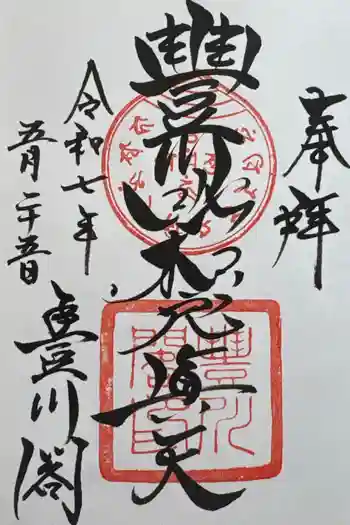 奉拝
豊川吒枳尼真天
令和七年
五月二十五日
豊川閣